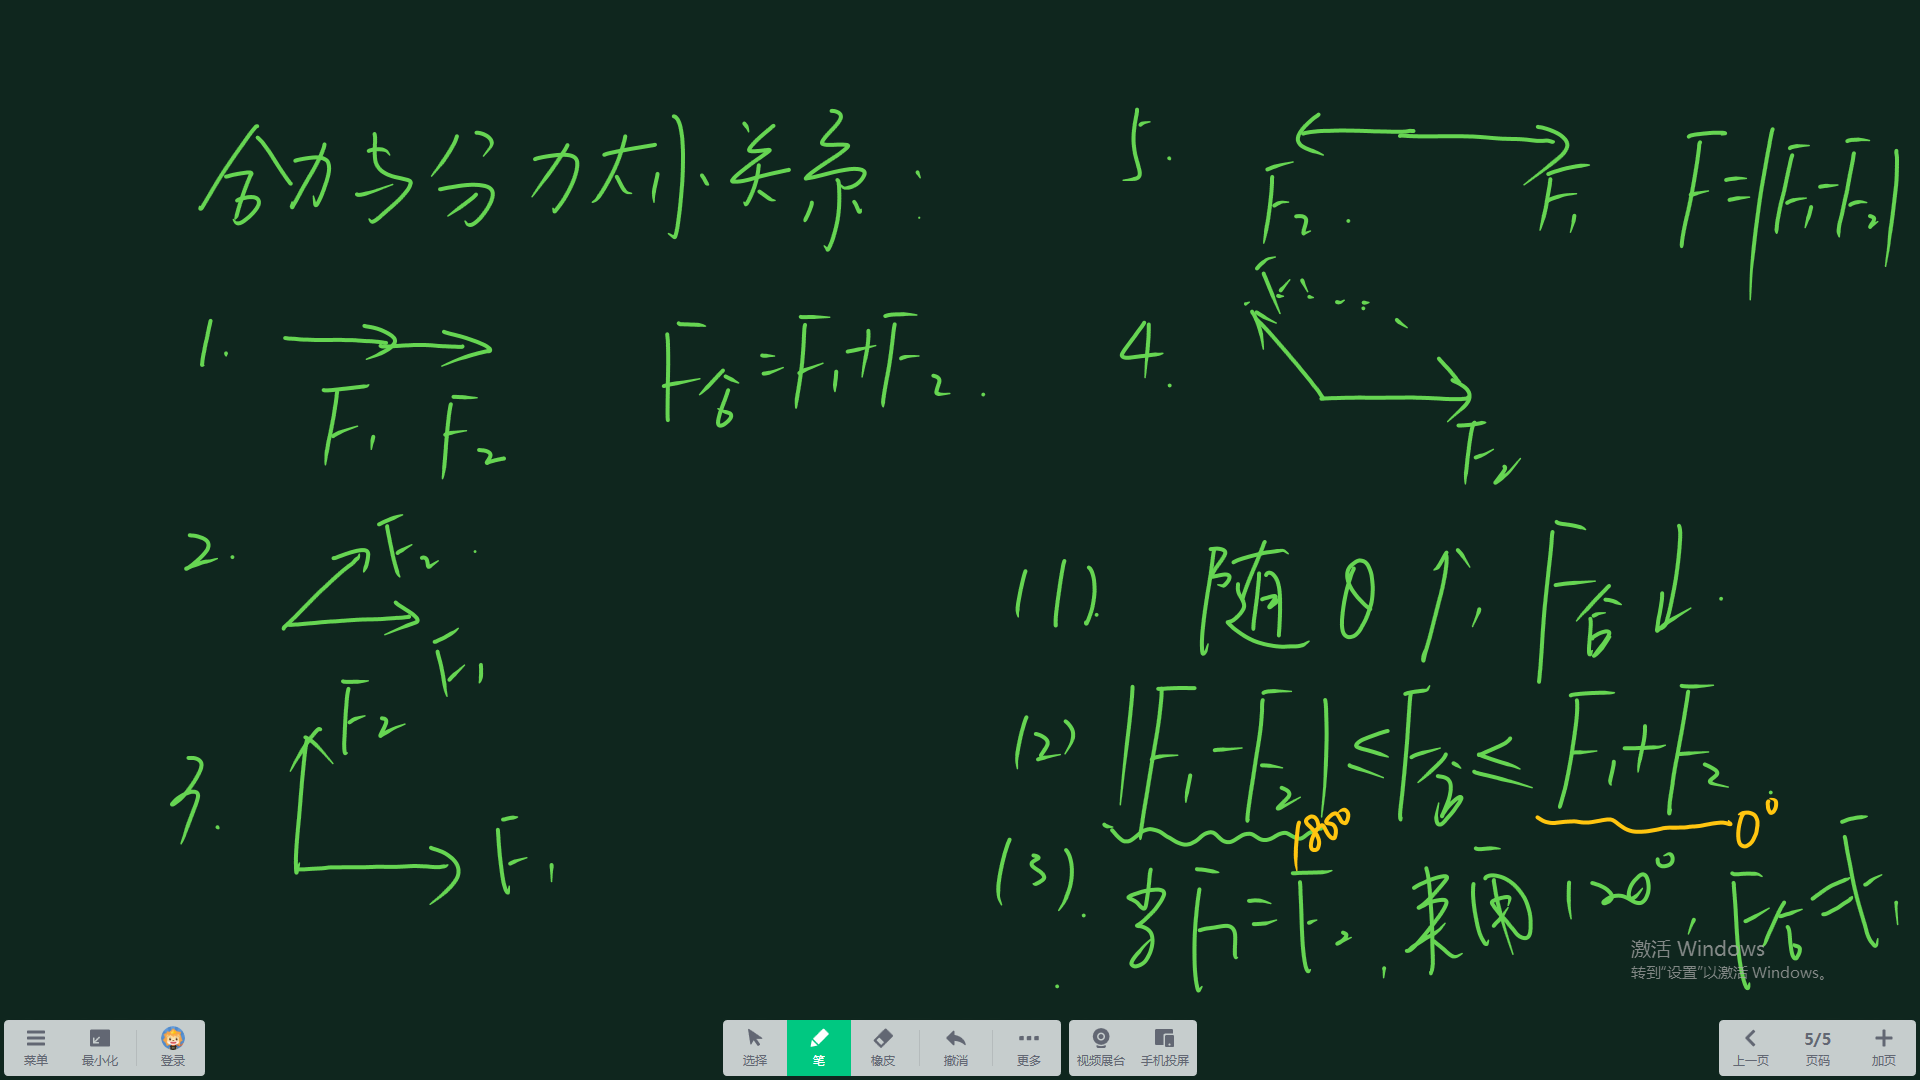 合力与分力大小关系:
1.
F₁ F₂
F合=F₁+F₂.
2.
F₂
F₁
3.
F₂
F₁
5.
F₂
F₁
F=|F₁-F₂|
4.
F₁
F₂
(1). 随θ↑, F合↓.
(2) |F₁-F₂|≤F合≤F₁+F₂
180° 0°
(3). 当F₁=F₂, 夹角120°, F合=F₁
激活 Windows
转到“设置”以激活 Windows。
菜单 最小化 登录
选择 笔 橡皮 撤消 更多
视频展台 手机投屏
上一页 5/5 页码 加页